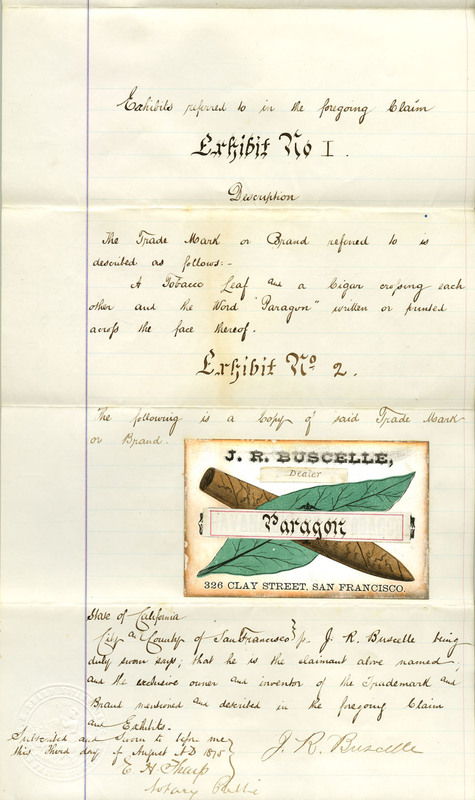 Exhibits referred to in the foregoing Claim
Exhibit No I.
Description
The Trade Mark or Brand referred to is
described as follows:-
A Tobacco Leaf and a Cigar crossing each
other and the Word "Paragon" written or printed
across the face thereof.
Exhibit No. 2.
The following is a Copy of said Trade Mark
or Brand.
J. R. BUSCELLE,
Dealer
Paragon
326 CLAY STREET, SAN FRANCISCO.
State of California
City and County of San Francisco } ss. J. R. Buscelle being
duly sworn says, that he is the claimant above named,
and the exclusive owner and inventor of the Trademark and
Brand mentioned and described in the foregoing Claim
and Exhibits.
Subscribed and Sworn to before me
this Third day of August A.D 1875
J. R. Buscelle
E. H. Tharp
Notary Public